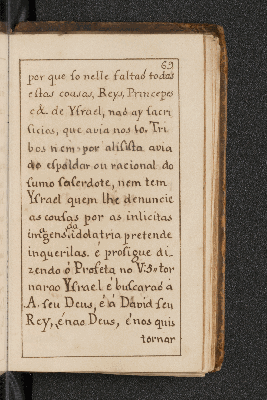 69
por que so nelle faltaõ todas
estas cousas, Reys, Princepes
e&. de Ysrael, naõ ay sacri
ficios, que avia nos 10. Tri
bos nem por alisista avia
do espaldar ou racional do
sumo saserdote, nem tem
Ysrael quem lhe denuncie
as cousas por as inlicitas
imagens da idolatria pretende
inquerilas. é prosigue di-
zendo ó Profeta no V. 5. tor
narao Ysrael é buscaraõ á
A. seu Deus, é á David seu
Rey, é naõ Deus, é nos quis
tornar